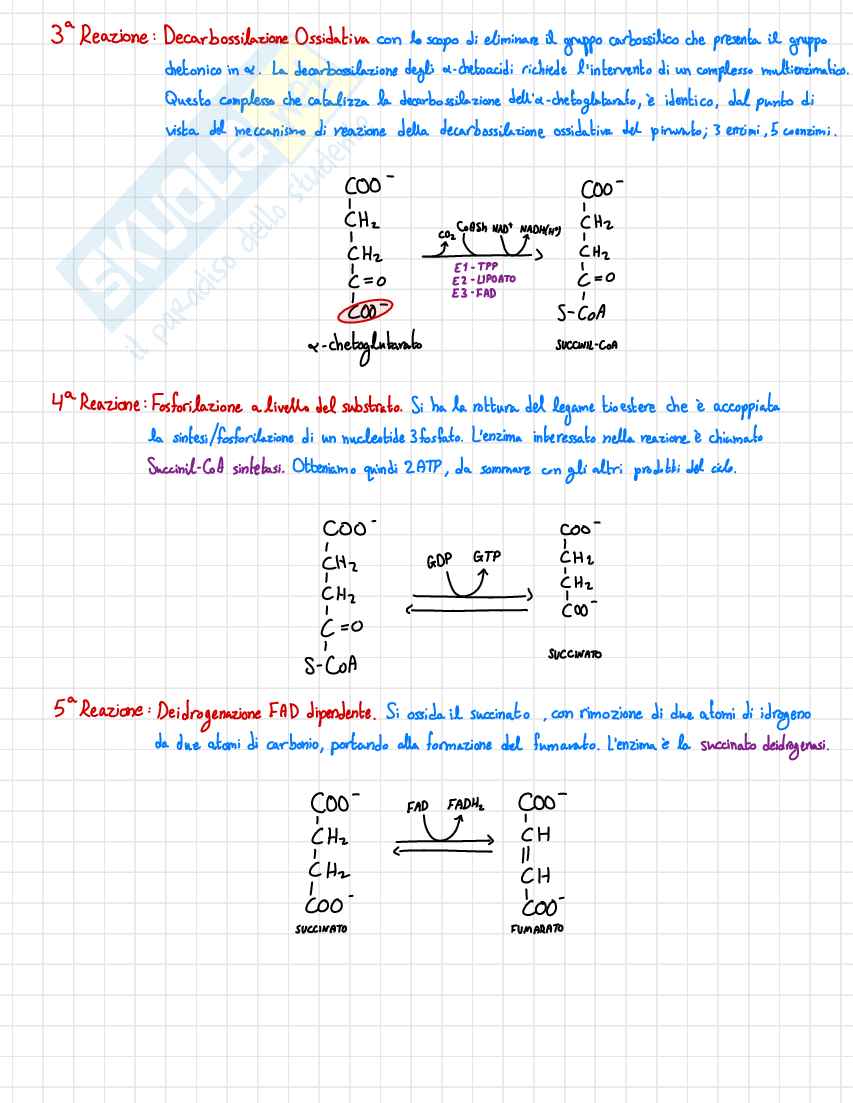 3ª Reazione: Decarbossilazione Ossidativa con lo scopo di eliminare il gruppo carbossilico che presenta il gruppo
chetonico in α. La decarbossilazione degli α-chetoacidi richiede l'intervento di un complesso multienzimatico.
Questo complesso che catalizza la decarbossilazione dell'α-chetoglutarato, è identico, dal punto di
vista del meccanismo di reazione della decarbossilazione ossidativa del piruvato; 3 enzimi, 5 coenzimi.
SKUOLA.net
il paradiso dello studente
COO⁻
CH₂
CH₂
C=O
COO⁻
α-chetoglutarato
CO₂ CoASh NAD⁺ NADH(H⁺)
E1-TPP
E2-LIPOATO
E3-FAD
COO⁻
CH₂
CH₂
C=O
S-CoA
SUCCINIL-CoA
4ª Reazione: Fosforilazione a livello del substrato. Si ha la rottura del legame tioestere che è accoppiata
la sintesi/fosforilazione di un nucleotide 3fosfato. L'enzima interessato nella reazione è chiamato
Succinil-CoA sintetasi. Otteniamo quindi 2ATP, da sommare con gli altri prodotti del ciclo.
COO⁻
CH₂
CH₂
C=O
S-CoA
GDP GTP
COO⁻
CH₂
CH₂
COO⁻
SUCCINATO
5ª Reazione: Deidrogenazione FAD dipendente. Si ossida il succinato, con rimozione di due atomi di idrogeno
da due atomi di carbonio, portando alla formazione del fumarato. L'enzima è la succinato deidrogenasi.
COO⁻
CH₂
CH₂
COO⁻
SUCCINATO
FAD FADH₂
COO⁻
CH
CH
COO⁻
FUMARATO